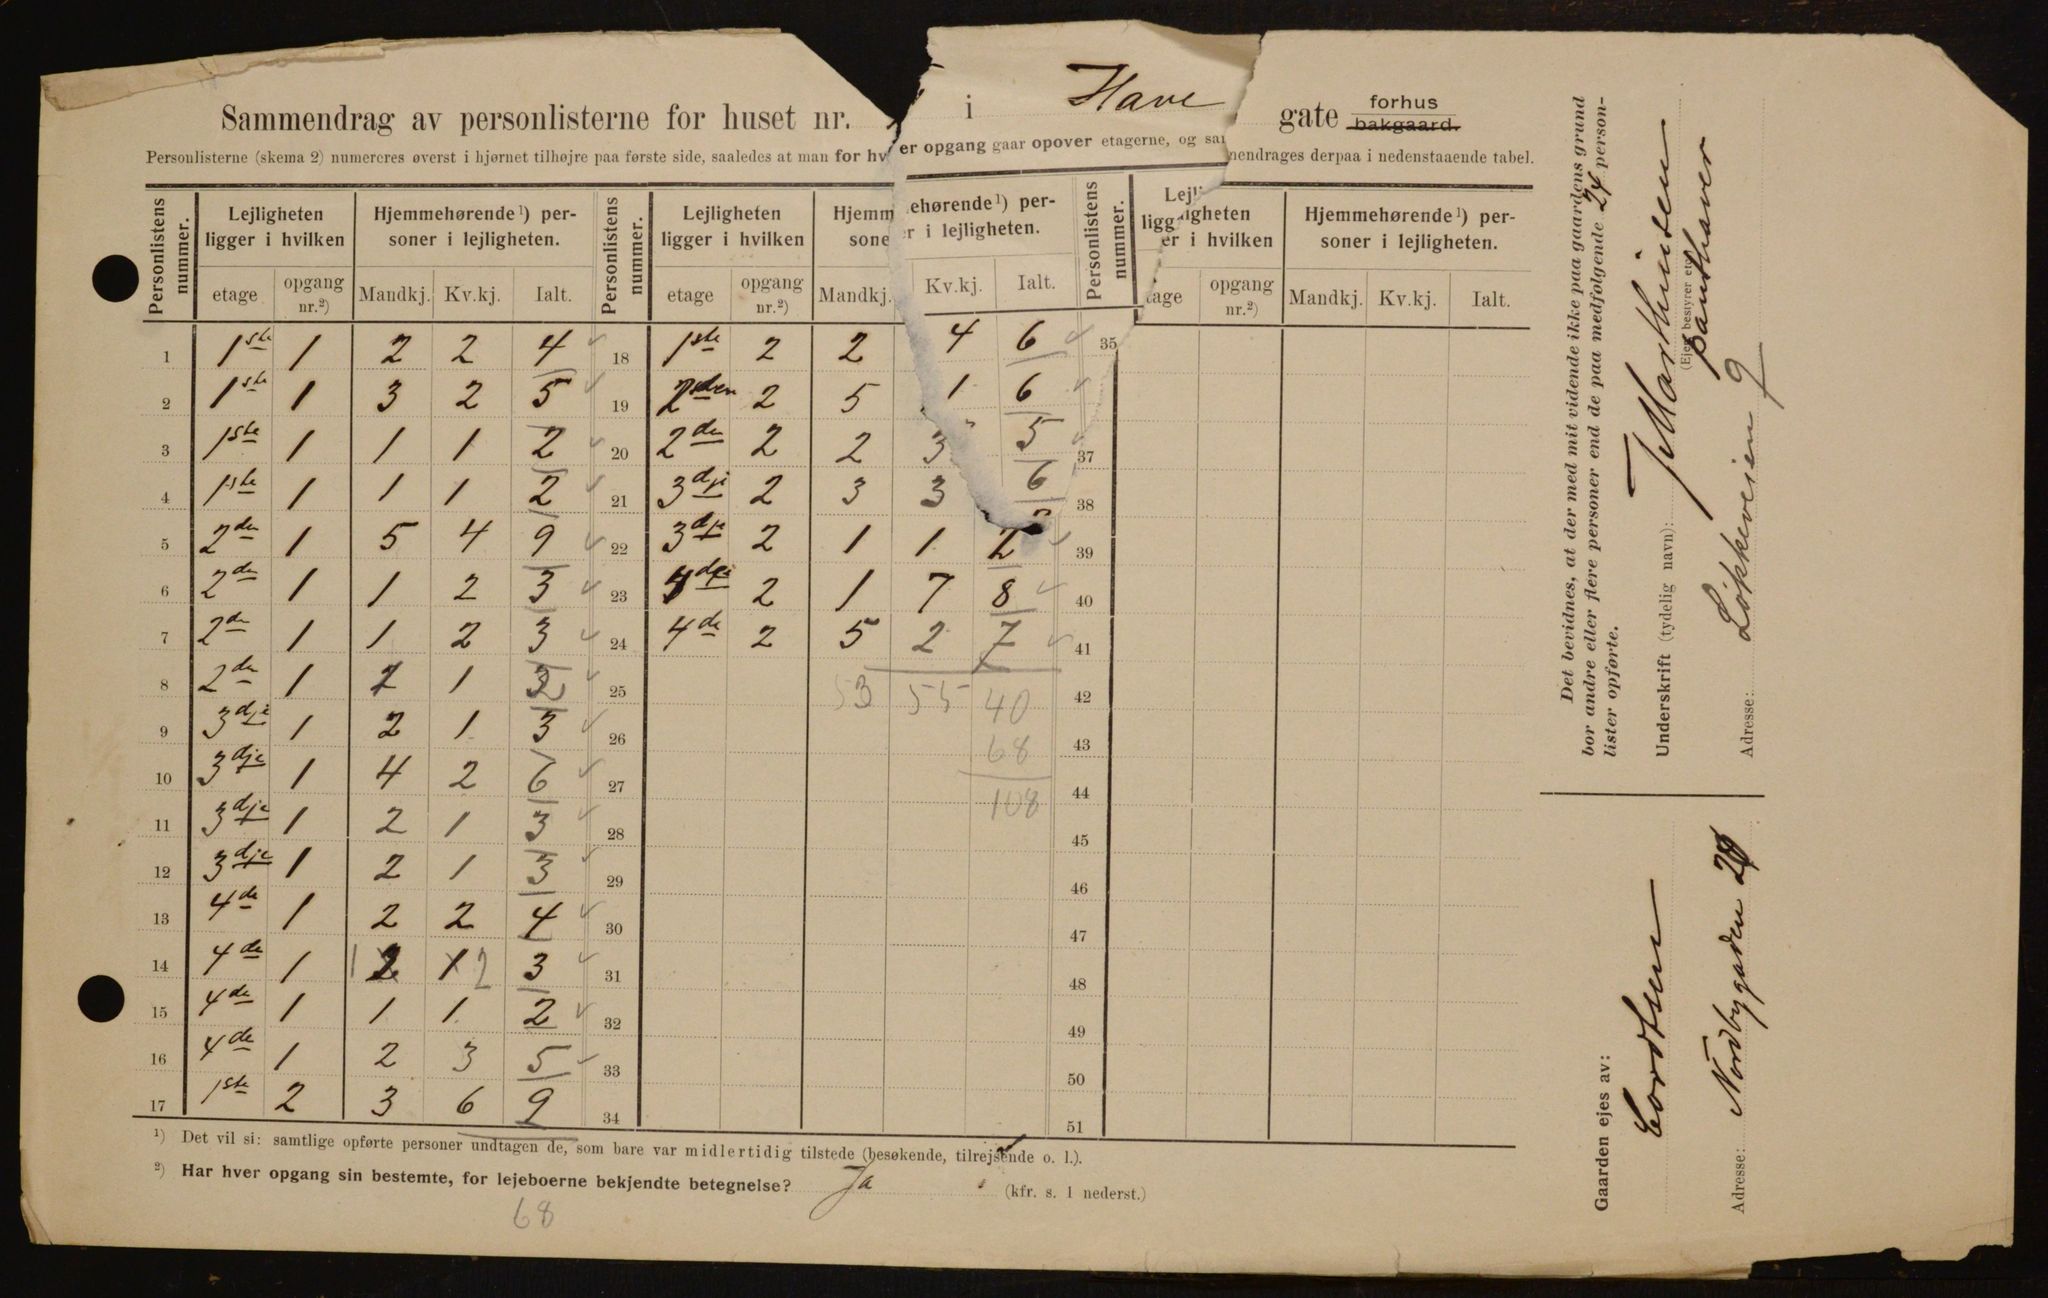 Sammendrag av personlisterne for huset nr. i Have gate forhus bakgaard.
Personlisterne (skema 2) numereres øverst i hjørnet tilhøjre paa første side, saaledes at man for hver opgang gaar opover etagerne, og sammendrages derpaa i nedenstaaende tabel.
Personlistens nummer. Lejligheten ligger i hvilken Hjemmehørende¹) personer i lejligheten. Personlistens nummer. Lejligheten ligger i hvilken Hjemmehørende¹) personer i lejligheten. Personlistens nummer. Lejligheten ligger i hvilken Hjemmehørende¹) personer i lejligheten.
etage opgang nr.²) Mandkj. Kv.kj. Ialt. etage opgang nr.²) Mandkj. Kv.kj. Ialt. etage opgang nr.²) Mandkj. Kv.kj. Ialt.
1 1ste 1 2 2 4 18 1ste 2 2 4 6 35
2 1ste 1 3 2 5 19 2den 2 5 1 6
3 1ste 1 1 1 2 20 2den 2 2 3 5 37
4 1ste 1 1 1 2 21 3dje 2 3 3 6 38
5 2den 1 5 4 9 22 3dje 2 1 1 2 39
6 2den 1 1 2 3 23 4de 2 1 7 8 40
7 2den 1 1 2 3 24 4de 2 5 2 7 41
8 2den 1 1 25 53 55 40 42
9 3dje 1 2 1 3 26 68 43
10 3dje 1 4 2 6 27 108 44
11 3dje 1 2 1 3 28 45
12 3dje 1 2 1 3 29 46
13 4de 1 2 2 4 30 47
14 4de 1 1 2 1 2 3 31 48
15 4de 1 1 1 2 32 49
16 4de 1 2 3 5 33 50
17 1ste 2 3 6 9 34 51
¹) Det vil si: samtlige opførte personer undtagen de, som bare var midlertidig tilstede (besøkende, tilrejsende o. l.).
²) Har hver opgang sin bestemte, for lejeboerne bekjendte betegnelse? Ja (kfr. s. 1 nederst.)
68
Det bevidnes, at der med mit vidende ikke paa gaardens grund
bor andre eller flere personer end de paa medfølgende 24 person-
lister opførte.
Underskrift (tydelig navn): J Marthinsen
(Ejer, bestyrer etc.)
panthaver
Adresse: Løkkeveien 9
Gaarden ejes av:
Cordtsen
Adresse: Nordbygaden